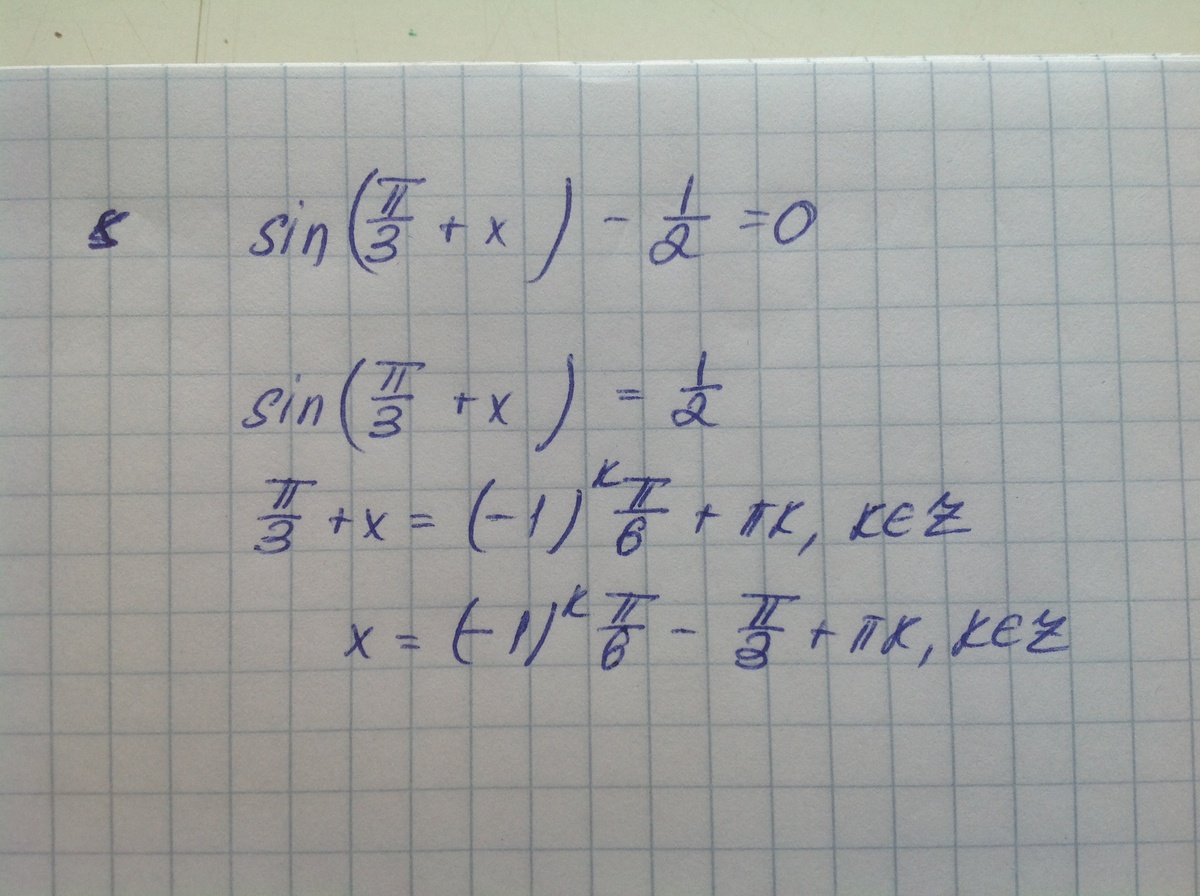 sin(π/3 + x) - 1/2 = 0
sin(π/3 + x) = 1/2
π/3 + x = (-1)^k π/6 + πk, k∈Z
x = (-1)^k π/6 - π/3 + πk, k∈Z